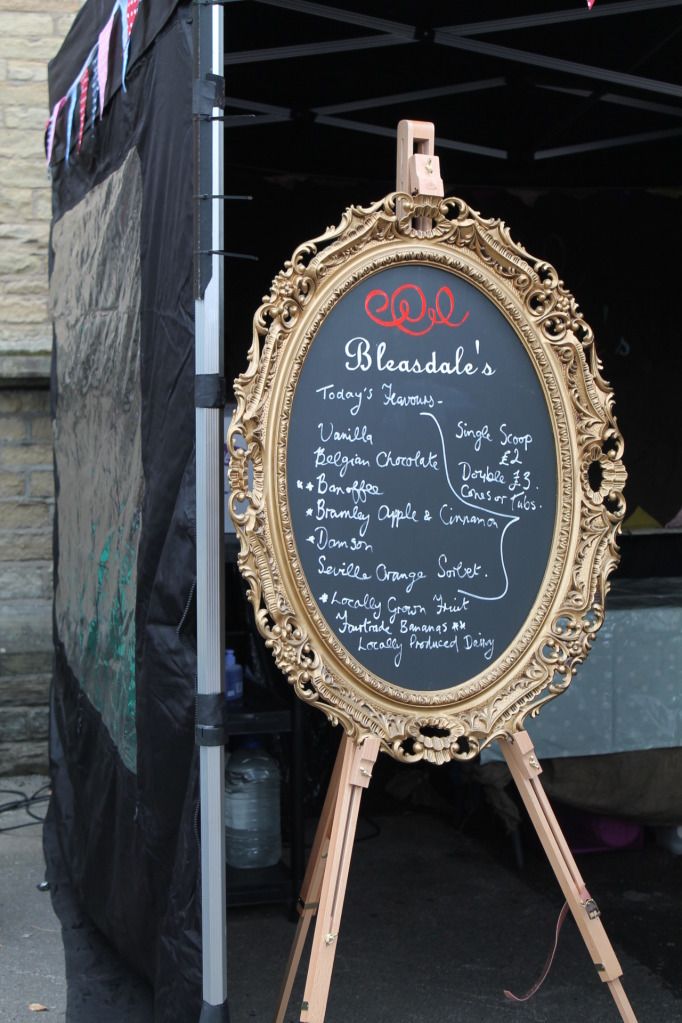 Bleasdale's
Today's Flavours -
Vanilla
Belgian Chocolate
** Banoffee
* Bramley Apple & Cinnamon
* Damson
Seville Orange Sorbet.
Single Scoop
£2
Double £3.
Cones or Tubs.
* Locally Grown Fruit
Fairtrade Bananas **
Locally Produced Dairy